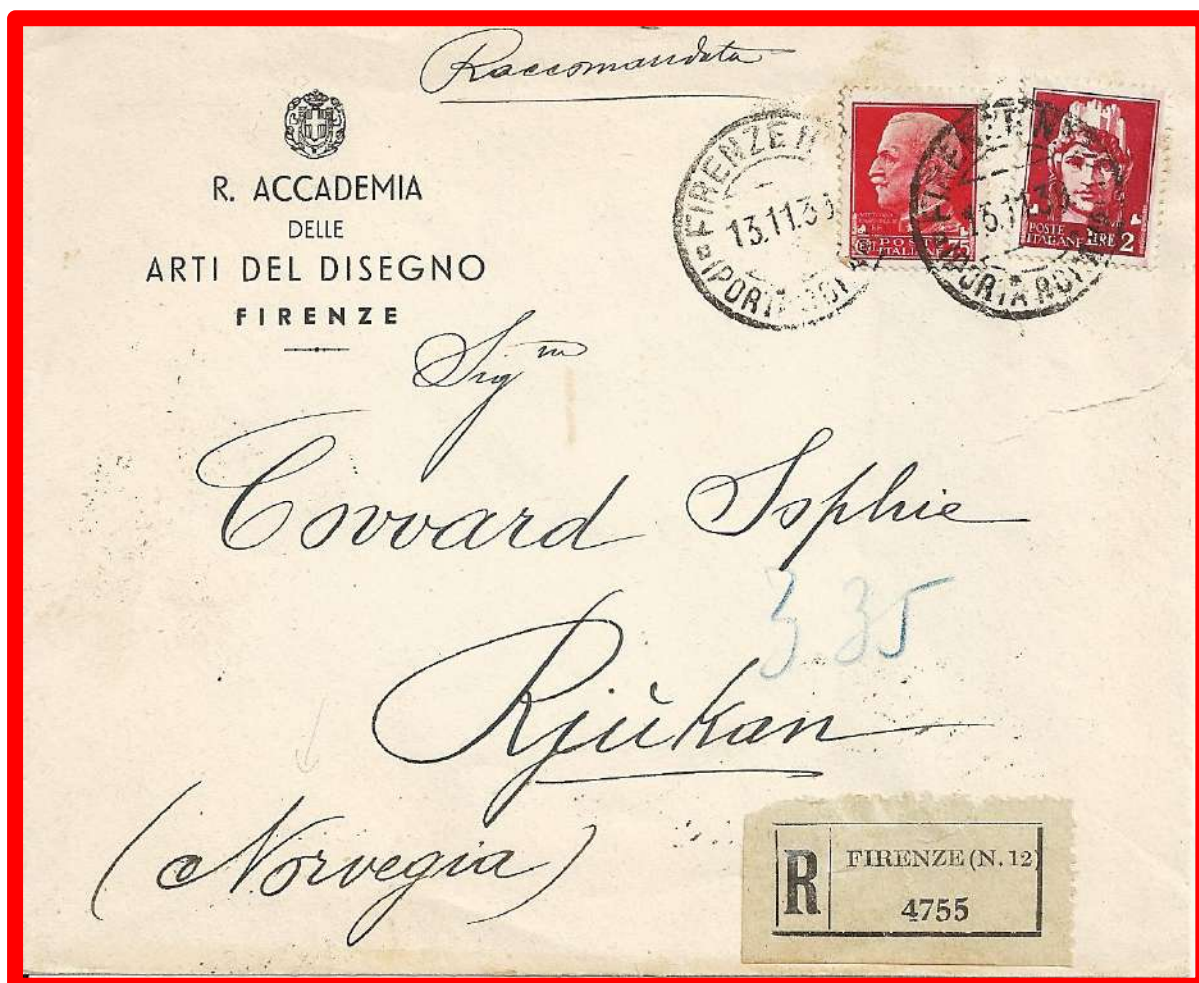 Raccomandata
R. ACCADEMIA
DELLE
ARTI DEL DISEGNO
FIRENZE
FIRENZE N
13.11.3
(PORTA RO
FIRENZE N
13.11.3
(PORTA ROMA
POSTE
ITALIANE
75
POSTE
ITALIANE
LIRE 2
Sig na
Covvard Sophie
3.35
Rjùkan
(Norvegia)
R
FIRENZE (N. 12)
4755